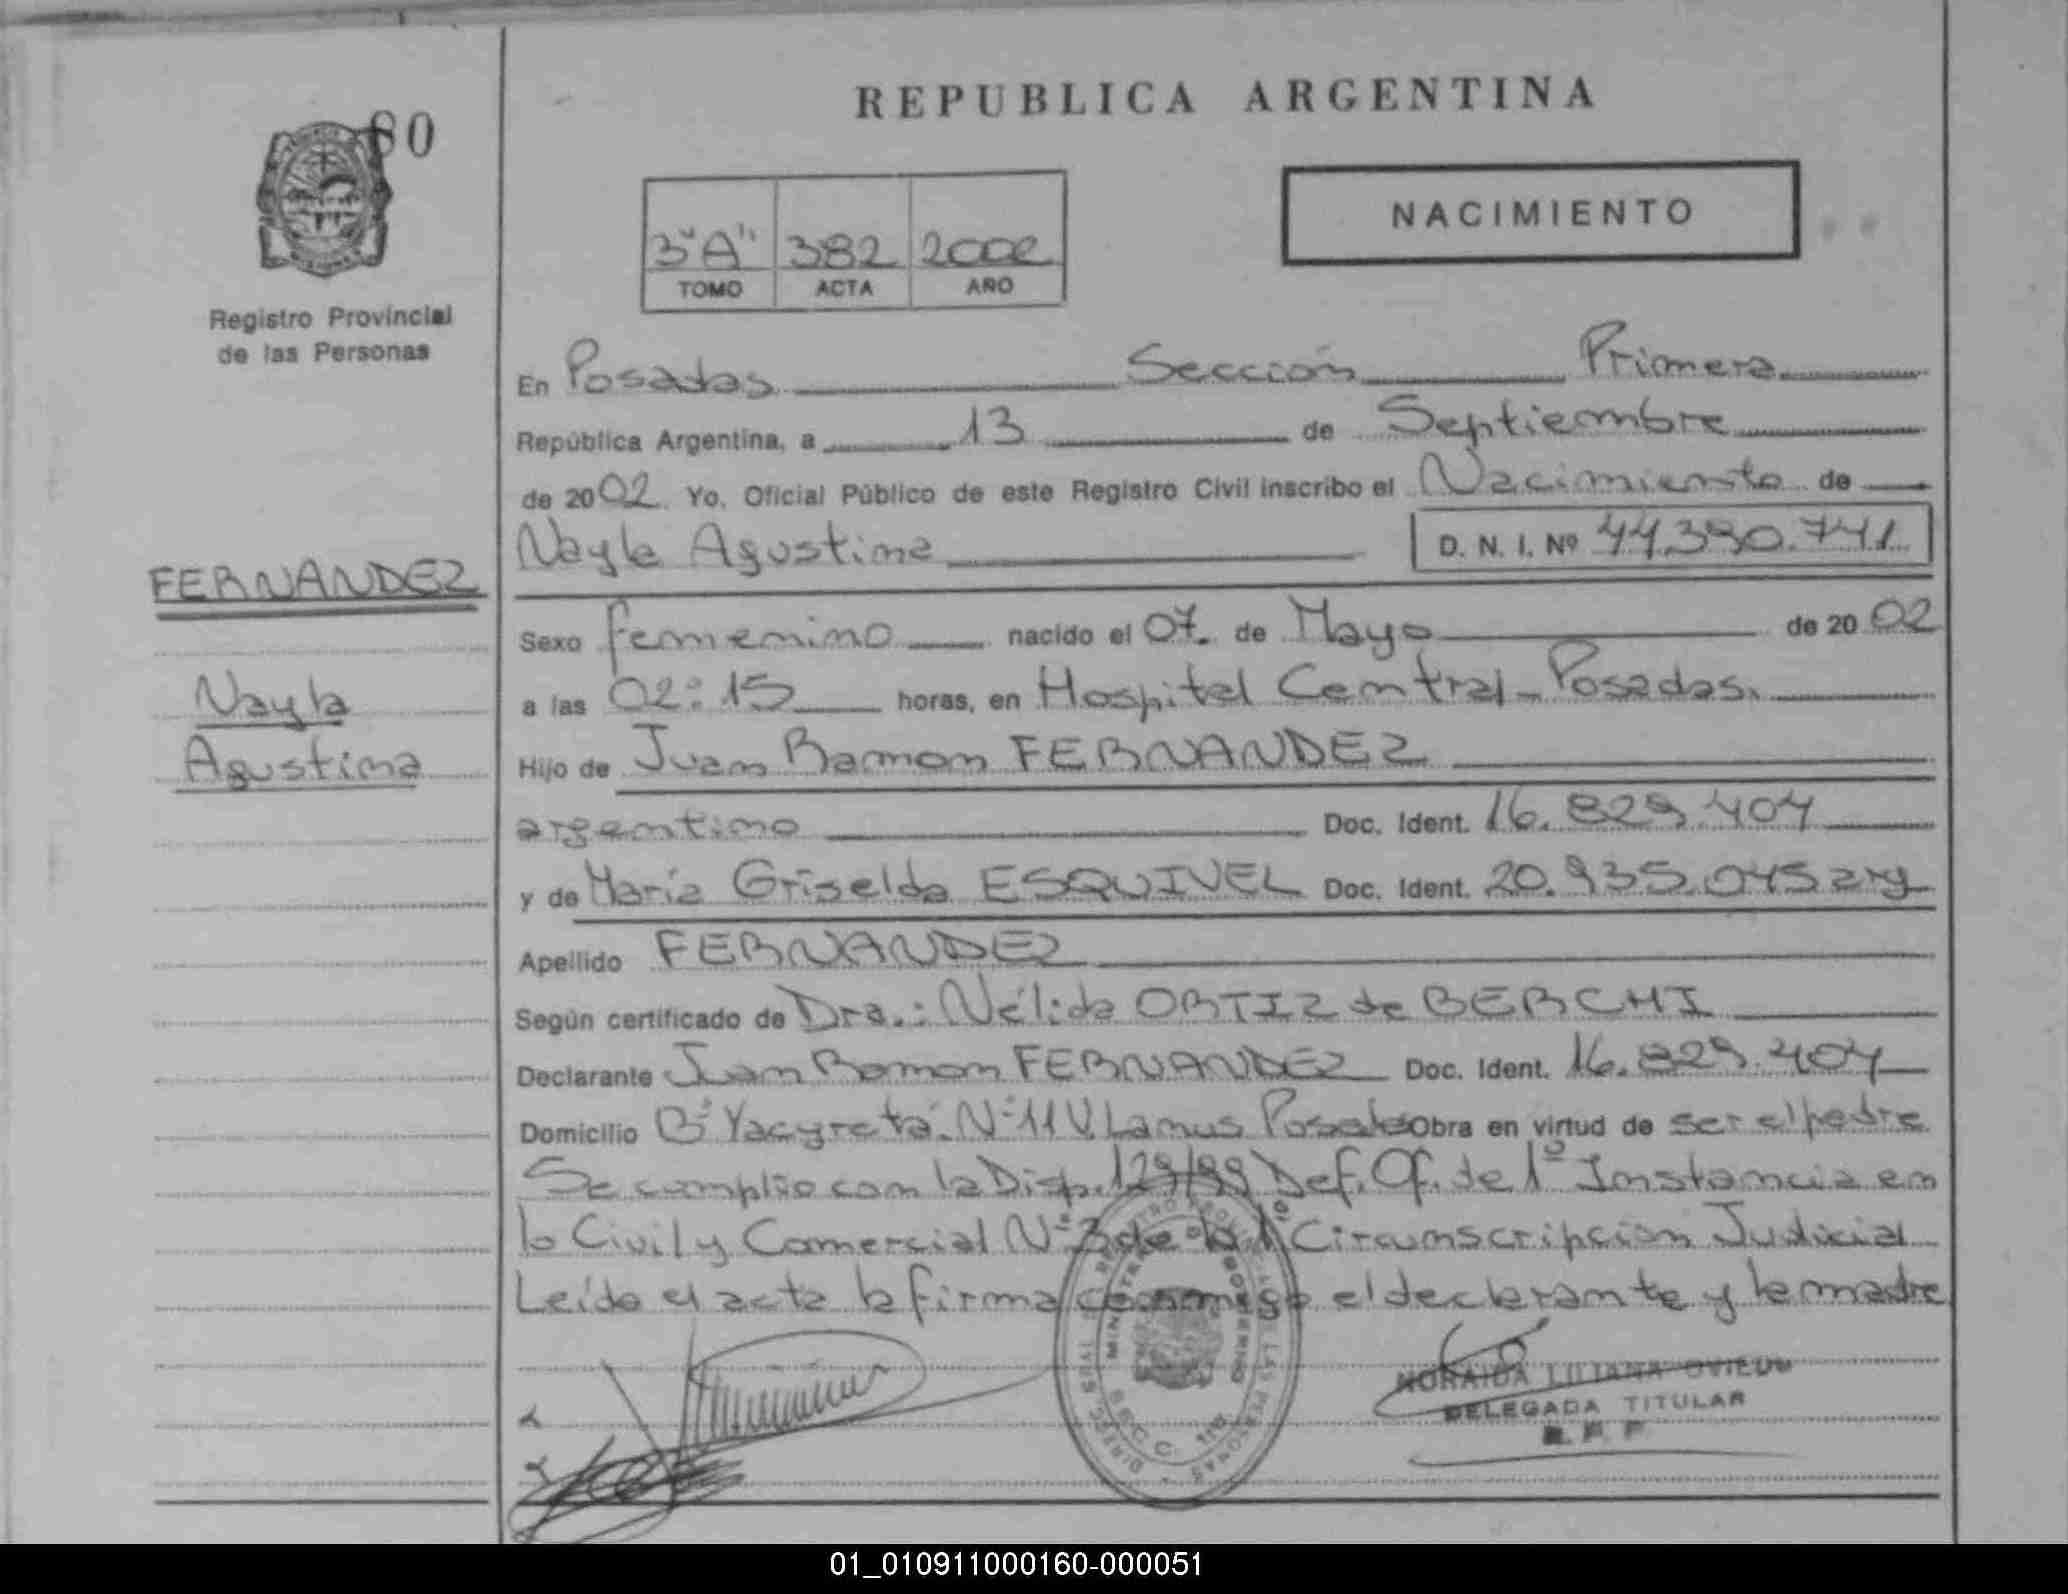 80
REPUBLICA ARGENTINA
NACIMIENTO
3"A" 382 2002
TOMO ACTA AÑO
Registro Provincial
de las Personas
En Posadas Sección Primera
República Argentina, a 13 de Septiembre
de 2002 Yo, Oficial Público de este Registro Civil inscribo el Nacimiento de
Nayla Agustina D. N. I. Nº 44.390.741
FERNANDEZ
Nayla
Agustina
Sexo femenino nacido el 07 de Mayo de 20 02
a las 02:15 horas, en Hospital Central - Posadas.
Hijo de Juan Ramon FERNANDEZ
argentino Doc. Ident. 16.829.404
y de María Griselda ESQUIVEL Doc. Ident. 20.935.045 arg
Apellido FERNANDEZ
Según certificado de Dra.: Nélida ORTIZ de BERCHI
Declarante Juan Ramon FERNANDEZ Doc. Ident. 16.829.404
Domicilio Bº Yacyretá Nº 11 V. Lanus Posadas obra en virtud de ser el padre
Se cumplio con la Disp. 129/99 Def. Of. de 1º Instancia en
lo Civil y Comercial Nº 3 de la 1º Circunscripción Judicial
Leída el acta la firma conmigo el declarante y la madre
MINISTERIO DE GOBIERNO
NORAIDA LILIANA OVIEDO
DELEGADA TITULAR
R. P. P.
01_010911000160-000051